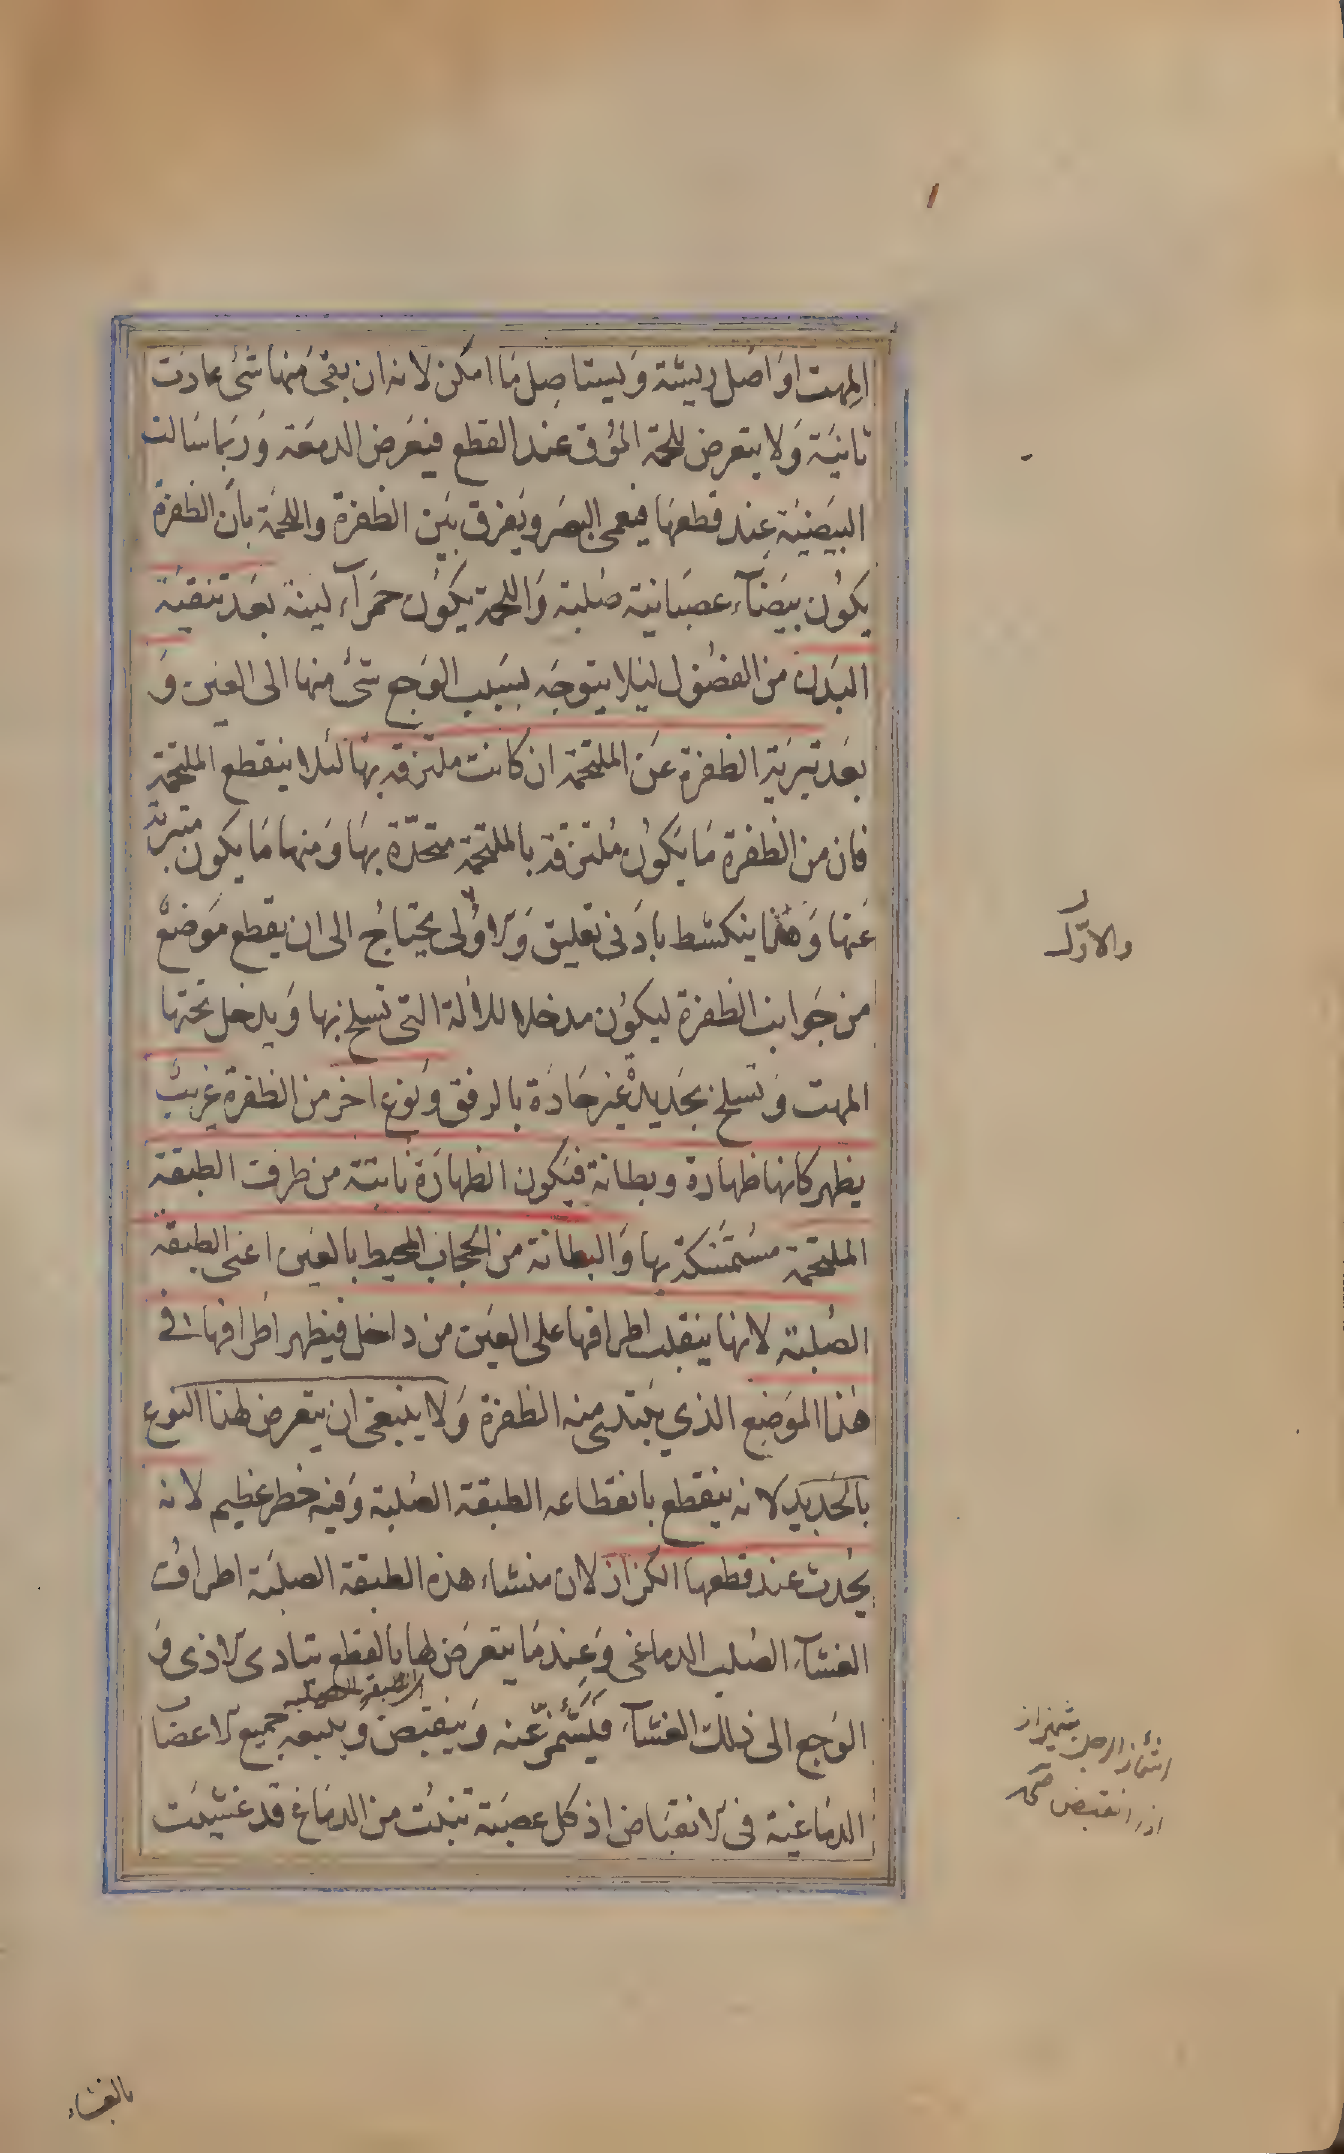 المهت او اصل ريشة و يستاصل ما امكن لانه ان بقى منها شئ عادت
ثانية و لا يتعرض للحمة المؤق عند القطع فيعرض الدمعة و ربما سالت
البيضية عند قطعها فيعمى البصر و يفرق بين الظفرة و اللحمة بان الظفرة
يكون بيضآء عصبانية صلبة و اللحمة يكون حمرآء لينة بعد تنقية
البدن من الفضول ليلا يتوجه بسبب الوجع شئ منها الى العين و
بعد تبرية الظفرة عن الملتحمة ان كانت ملتزقة بها لئلا ينقطع الملتحمة
فان من الظفرة ما يكون ملتزقة بالملتحمة متحدة بها و منها ما يكون متبرية
عنها و هذا ينكشط بادنى تعليق و الاولى يحتاج الى ان يقطع موضع
من جوانب الظفرة ليكون مدخلا للالة التى تسلخ بها و يدخل تحتها
المهت و تسلخ بحديدة غير حادة بالرفق و نوع اخر من الظفرة غريب
يظهر كانها ظهارة و بطانة فيكون الظهارة نابتة من طرف الطبقة
الملتحمة مستمسكة بها و البطانة من الحجاب المحيط بالعين اعنى الطبقة
الصلبة لانها ينقلب اطرافها على العين من داخل فيظهر اطرافها فى
هذا الموضع الذي يبتدى منه الظفرة و لا ينبغى ان يتعرض لهذا النوع
بالحديد لانه ينقطع بانقطاعه الطبقة الصلبة و فيه خطر عظيم لانه
يحدث عند قطعها الكزاز لان منشاء هذه الطبقة الصلبة اطراف
الغشآء الصلب الدماغى و عند ما يتعرض لها بالقطع يتادى الاذى و
الطبقة الصلبة
الوجع الى ذلك الغشآء فيشمئز عنه و ينقبض و يتبعه جميع الاعضا
الدماغية فى الانقباض اذ كل عصبة تنبت من الدماغ قد غشيت
والاول
اشمأز الرجل يشمئز
انقبض
بالغشاء